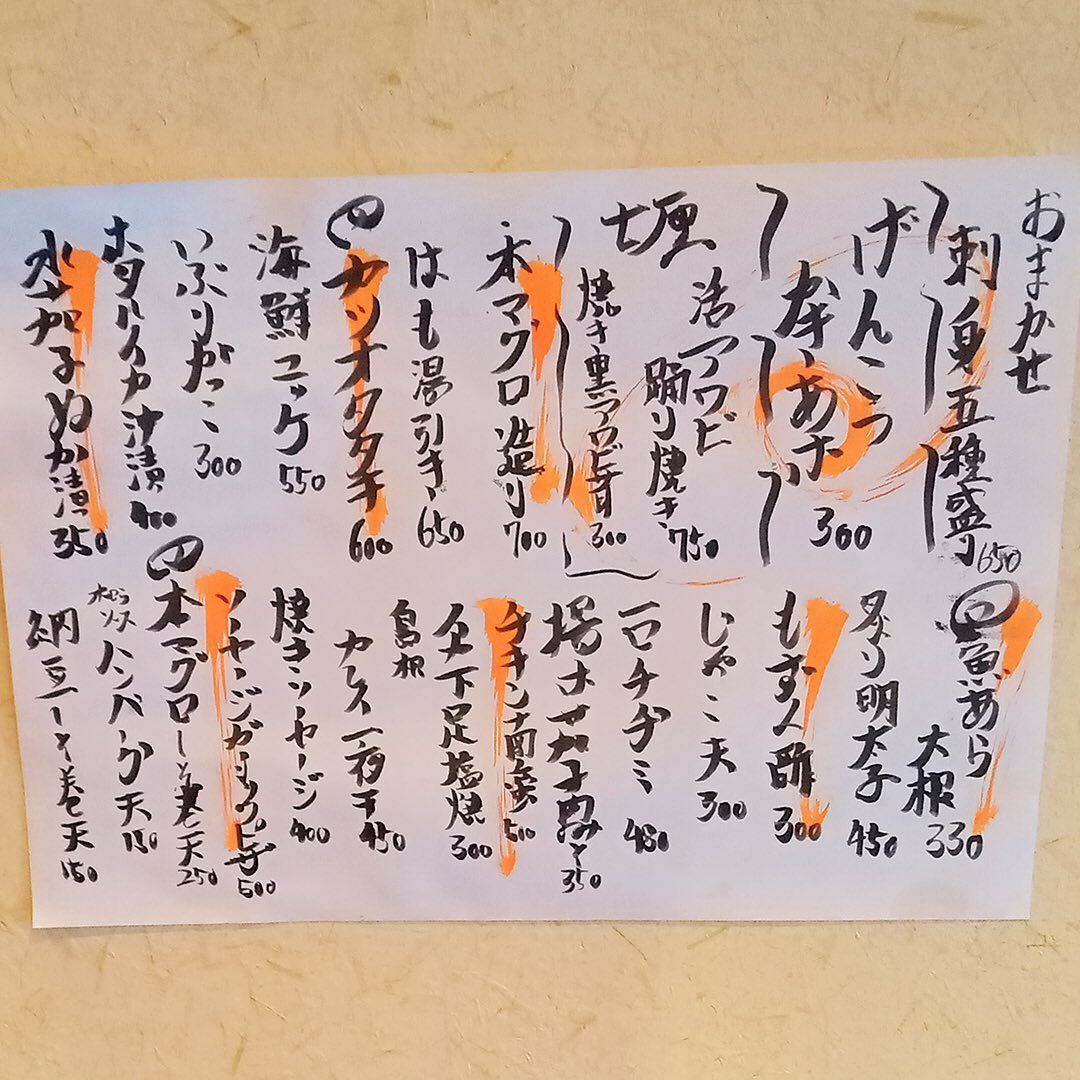 おまかせ
刺身五種盛り 650
げんこつ
本あナゴ 300
活アワビ
踊り焼き 750
焼き黒アワビ串 300
本マグロ造り 700
はも湯引き 650
カツオタタキ 600
海鮮ユッケ 550
いぶりがっこ 300
ホタルイカ沖漬 400
水茄子ぬか漬 350
魚あら
大根 330
炙り明太子 450
もずく酢 300
じゃこ天 300
一口チヂミ 480
揚ナセ 350
チキン南蛮 500
下足塩焼 300
島根
カレイ一夜干 450
焼きソーセージ 400
ソーセージガーリックピザ 500
本マグロしそ巻天 250
ソース
ハンバーグ天 150
納豆しそ巻天 150